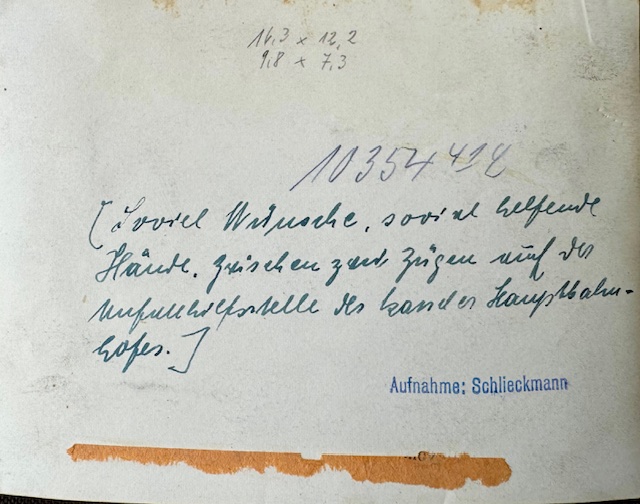 16,3 x 12,2
9,8 x 7,3
10354
[Soviel Wünsche, soviel helfende
Hände. Zwischen zwei Zügen auf der
Unfallhilfsstelle des Hauptbahn-
hofes.]
Aufnahme: Schlieckmann